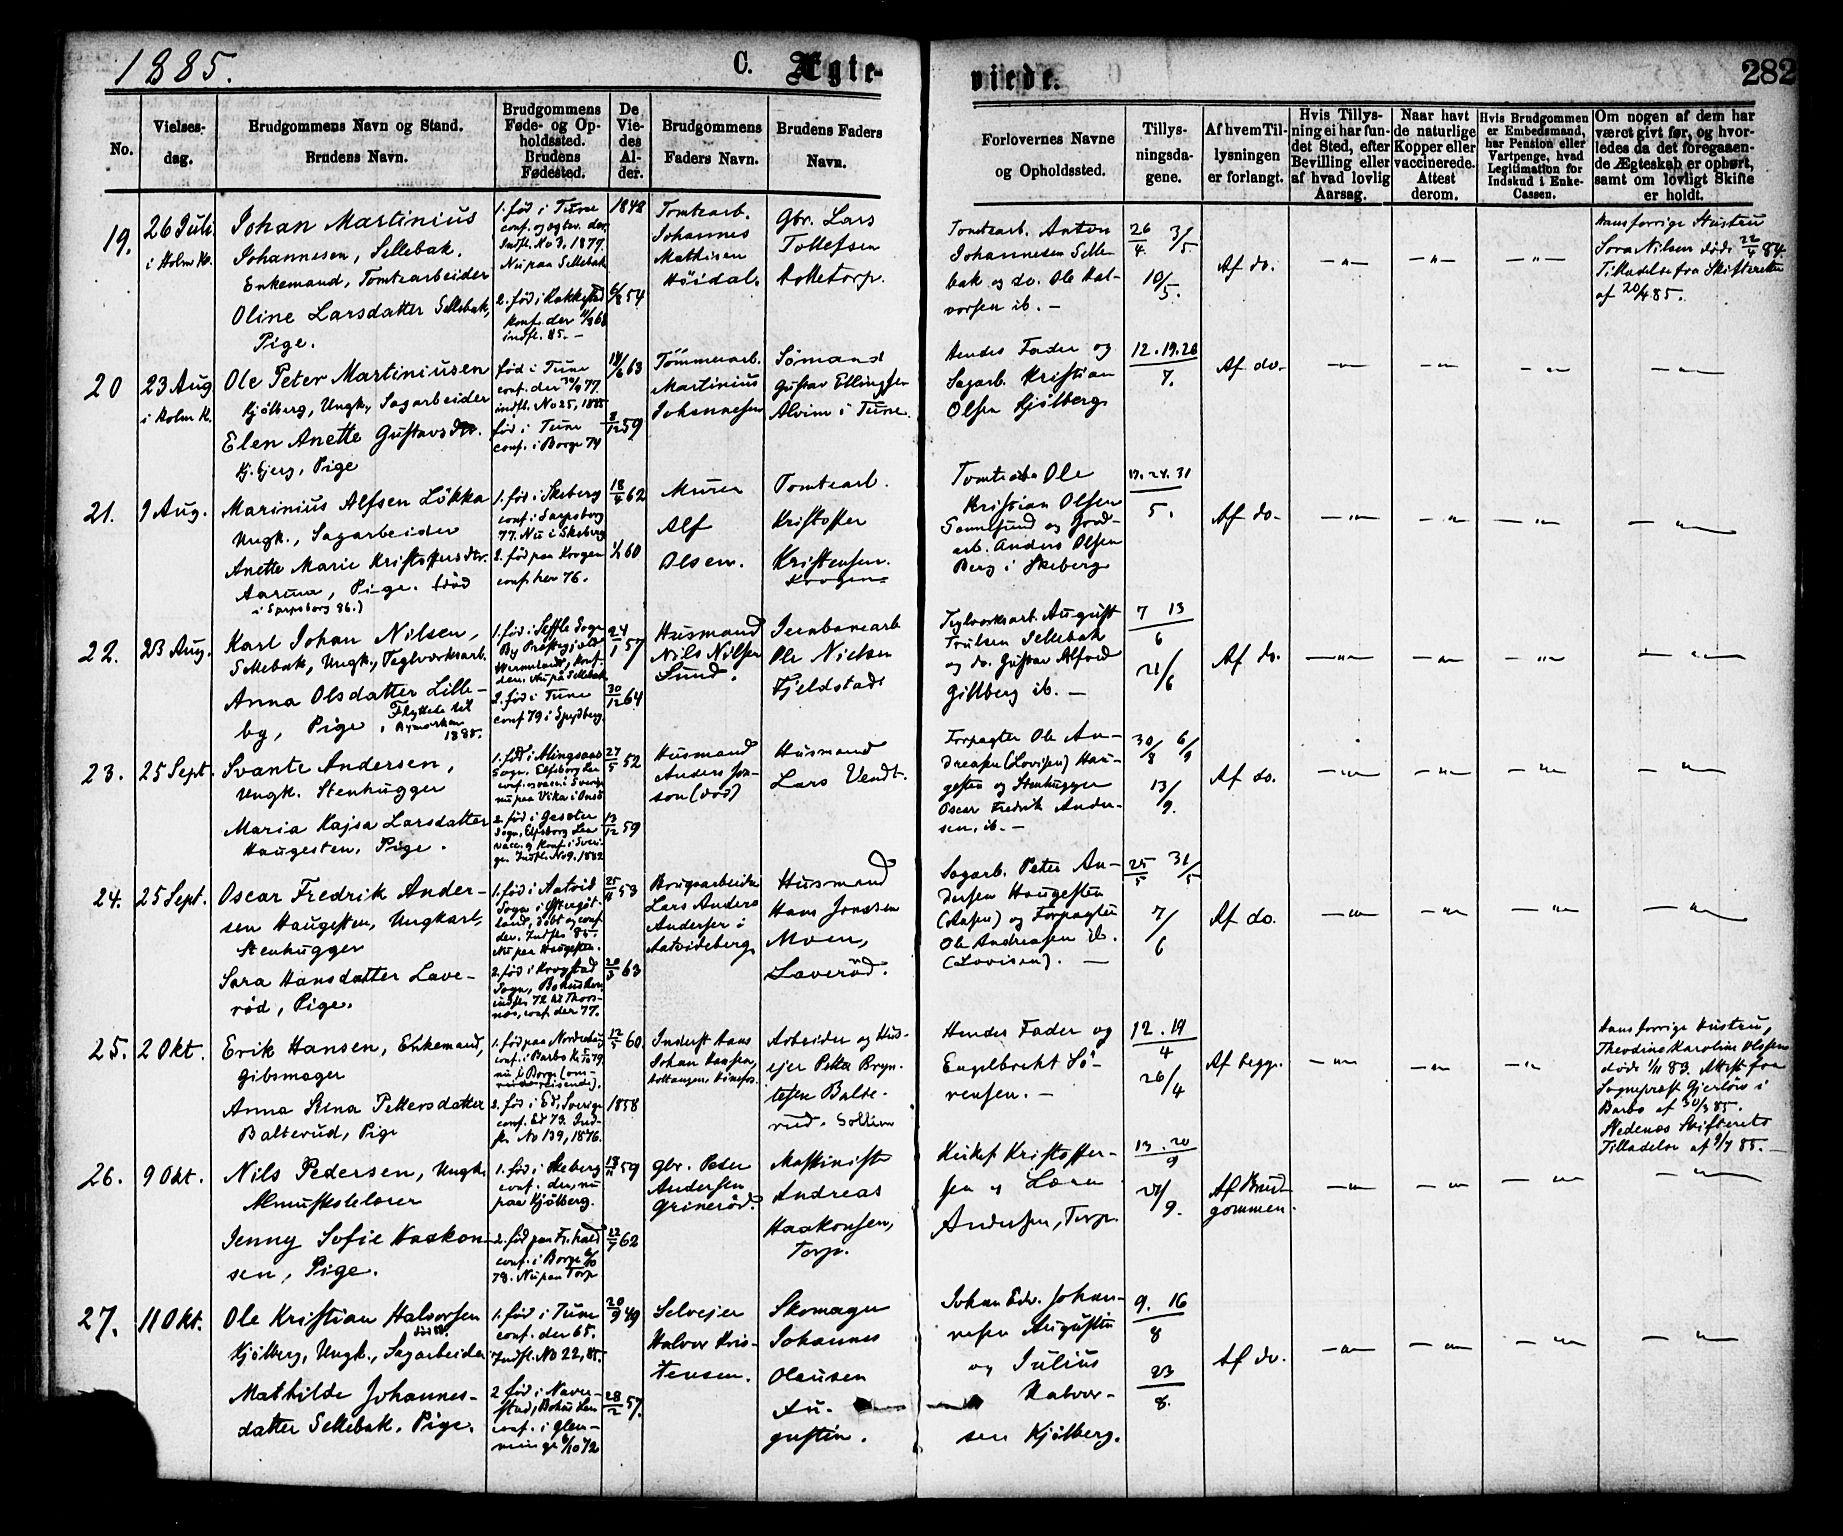 1885.
C. Ægte-
viede.
282
No.
Vielses-
dag.
Brudgommens Navn og Stand.
Brudens Navn.
Brudgommens
Føde- og Op-
holdssted.
Brudens
Fødested.
De
Vie-
des
Al-
der.
Brudgommens
Faders Navn.
Brudens Faders
Navn.
Forlovernes Navne
og Opholdssted.
Tillys-
ningsda-
gene.
Af hvem Til-
lysningen
er forlangt.
Hvis Tillys-
ning ei har fun-
det Sted, efter
Bevilling eller
af hvad lovlig
Aarsag.
Naar havt
de naturlige
Kopper eller
vaccinerede.
Attest
derom.
Hvis Brudgommen
er Embedsmand,
har Pension eller
Vartpenge, hvad
Legitimation for
Indskud i Enke-
Cassen.
Om nogen af dem har
været givt før, og hvor-
ledes da det foregaaen-
de Ægteskab er ophørt,
samt om lovligt Skifte
er holdt.
19.
26 Juli
i Holm K.
Johan Martinius
Johannesen, Sellebak,
Enkemand, Tomtearbeider
Oline Larsdatter Sellebak,
Pige.
1. fød i Tune
Indfl. No 3, 1877.
Nu paa Sellebak
2. fød i Rakkestad
konf. der
indfl. 85. –
1848
6/8 54
Tomtearb.
Johannes
Mathisen
Høidal.
Gbr. Lars
Tollefsen
Tomtearb. Anton
Johannesen Selle-
bak og do. Ole Hal-
vorsen ib. –
26/4 3/5
10/5.
Af do.
– " –
– " –
– " –
Hans forrige Hustru
død 22/4 84.
Tilladelse fra Skifteretten
af 20/4 85.
20
23 Aug
i Holm K.
Ole Peter Martiniusen
Kjølberg, Ungk., Sagarbeider
Elen Anette Gustavsdtr.
Pige
fød i Tune
conf. der 77.
indfl. No 25, 1885
fød i Tune
conf. i Borge 74
63
8/12 59
Tømmerarb.
Martinius
Johannesen
Sømand
Gustav Ellingsen
Alvim i Tune.
Hendes Fader og
Sagarb. Kristian
Olsen Kjølberg
12. 19. 26
7.
Af do.
– " –
– " –
– " –
– " –
21.
9 Aug.
Marinius Alfsen Løkka
Ungk., Sagarbeider
Anette Marie Kristoffersdtr.
Pige. død
i Sarpsborg 86.)
1. fød i Skeberg
conf. i Sarpsborg
77. Nu i Skeberg
2. fød paa Krogen
conf. her 76.
18/4 62
60
Murer
Alf
Olsen.
Tomtearb.
Kristoffer
Kristensen.
Krogen
Ole
Kristian Olsen
Sannesund og Jord-
arb. Anders Olsen
Berg i Skeberg
17. 24. 31
5.
Af do.
– " –
– " –
– " –
– " –
22.
23 Aug.
Karl Johan Nilsen,
Sellebak, Ungk., Teglværksarb.
Anna Olsdatter Lille-
by, Pige.
Flyttede til
1885.
1. fød i Seffle Sogn
By Prestegjeld
Vermland, konf.
der. Nu paa Sellebak
2. fød i Tune
conf 79 i Spydberg.
24/1 57
30/12 64
Husmand
Nils Nilsen
Lund.
Jernbanearb
Ole Nielsen
Fjeldstad
Teglværksarb. August
Trulsen Sellebak
og do. Gustav Alfred
Gillberg ib. –
7 13
6
21/6
Af do.
– " –
– " –
– " –
– " –
23.
25 Sept.
Svante Andersen,
Ungk. Stenhugger
Maria Kajsa Larsdatter
Haugesten, Pige.
1. fød i Alingsaas
Sogn, Elfsborg Len
conf. og vacc. i Sverige
nu paa Vika i Onsø
2. fød i Gesäter
Sogn, Elfsborg Len
vacc. og konf. i Sveri-
ge. Indfl. No 9. 1882
27/5 52
13/12 59
Husmand
Anders Jon-
son (død)
Husmand
Lars Vendt.
Forpagter Ole An-
dreasen (Lovisen) Hau-
gesten og Stenhugger
Oscar Fredrik Ander-
sen, ib. –
30/8 6/9
13/9.
Af do.
– " –
– " –
– " –
– " –
24.
25 Sept.
Oscar Fredrik Ander-
sen Haugesten, Ungkarl,
Stenhugger
Sara Hansdatter Lave-
rød, Pige.
1. fød i Aatvid
Sogn i Østergöt-
land, døbt og conf.
der. Indfl. 85.
Nu paa Haugesten.
2. fød i Krogstad
Sogn, Bohuslen
indfl. 72 til Thors-
næs, conf. der 77.
53
20/3 63
Brugsarbeider
Lars Anders
Andersen i
Aatvideberg
Husmand
Hans Jonasen
Moen,
Laverød.
Sagarb. Peter An-
dersen Haugesten
(Aasen) og Forpagter
Ole Andreasen ib.
(Lovisen). –
25/5 31/5
7/6
Af do.
– " –
– " –
– " –
– " –
25.
2 Okt.
Erik Hansen, Enkemand,
Gibsmager
Anna Stina Pettersdatter
Balterud, Pige
1. fød paa Nordre
nu i Borge (om-
reisende).
2. fød i Ed, Sverige
conf. Ed 73. Ind-
fl. No 139, 1876.
12/5 60
1858
Inderst Hans
Johan Hansen,
Arbeider og Hus-
ejer Petter Bryn-
telsen Balte-
rud. Sollien
Hendes Fader og
Engelbrekt Sø-
rensen. –
12. 19
4
26/4
Af begge
– " –
– " –
– " –
Hans forrige Hustru,
Theodine Karoline Olsen
døde 1/11 83. Attest fra
Sognepræst Gjerløw i
Barbo af 30/3 85.
Nedenæs Skifterets
Tilladelse af 85. –
26.
9 Okt.
Nils Pedersen, Ungk.
Almueskolelærer
Jenny Sofie Haakon-
sen, Pige.
1. fød i Skeberg
conf. der, nu
paa Kjølberg.
2. fød paa Fr.hald
conf. i Borge
78. Nu paa Torp
59
22/7 62
Gbr. Peder
Andersen
Grinerød.
Maskinist
Andreas
Haakonsen,
Torp.
Kristoffer-
sen og
Andersen, Torp.
13. 20
9
27/9.
Af Brud-
gommen.
– " –
– " –
– " –
– " –
27.
11 Okt.
Ole Kristian Halvorsen
Kjølberg, Ungk., Sagarbeider
Mathilde Johannes-
datter Sellebak, Pige.
1. fød i Tune
conf. der 65.
Indfl. No 22, 85.
2. fød i Naver-
stad, Bohus Len
conf. i Glem-
minge 72
20/9 49
28/2 57.
Selvejer
Halvor Kris-
tensen.
Skomager
Johannes
Olausen
Au-
gustin.
Johan Edv. Johan-
nesen Augustin
og Julius
Halvor-
sen Kjølberg.
9. 16
8
23
8.
Af do.
– " –
– " –
– " –
– " –